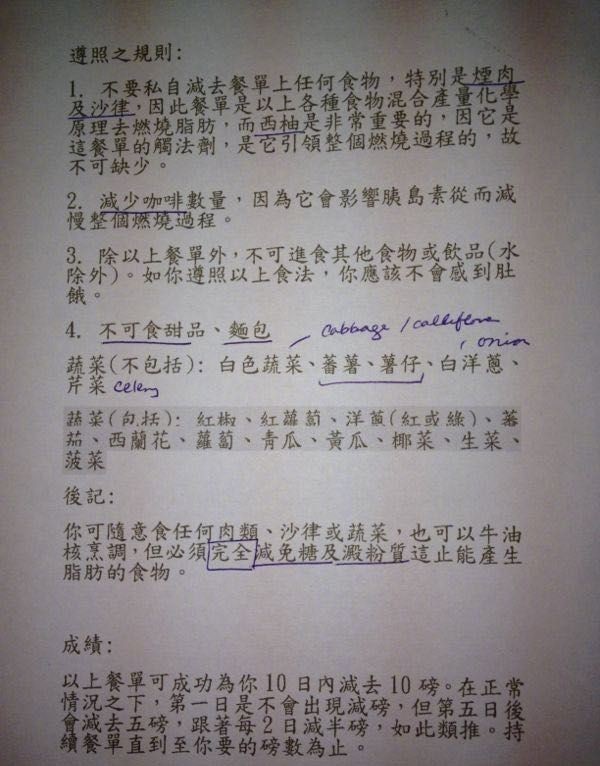 遵照之規則:
1. 不要私自減去餐單上任何食物，特別是煙肉
及沙律，因此餐單是以上各種食物混合產量化學
原理去燃燒脂肪，而西柚是非常重要的，因它是
這餐單的觸法劑，是它引領整個燃燒過程的，故
不可缺少。
2. 減少咖啡數量，因為它會影響胰島素從而減
慢整個燃燒過程。
3. 除以上餐單外，不可進食其他食物或飲品(水
除外)。如你遵照以上食法，你應該不會感到肚
餓。
4. 不可食甜品、麵包
cabbage / calliflora
, onion
蔬菜(不包括): 白色蔬菜、蕃薯、薯仔、白洋蔥、
芹菜 celery
蔬菜(包括): 紅椒、紅蘿蔔、洋蔥(紅或綠)、蕃
茄、西蘭花、蘿蔔、青瓜、黃瓜、椰菜、生菜、
菠菜
後記:
你可隨意食任何肉類、沙律或蔬菜，也可以牛油
核烹調，但必須完全減免糖及澱粉質這止能產生
脂肪的食物。
成績:
以上餐單可成功為你10日內減去10磅。在正常
情況之下，第一日是不會出現減磅，但第五日後
會減去五磅，跟著每2日減半磅，如此類推。持
續餐單直到至你要的磅數為止。